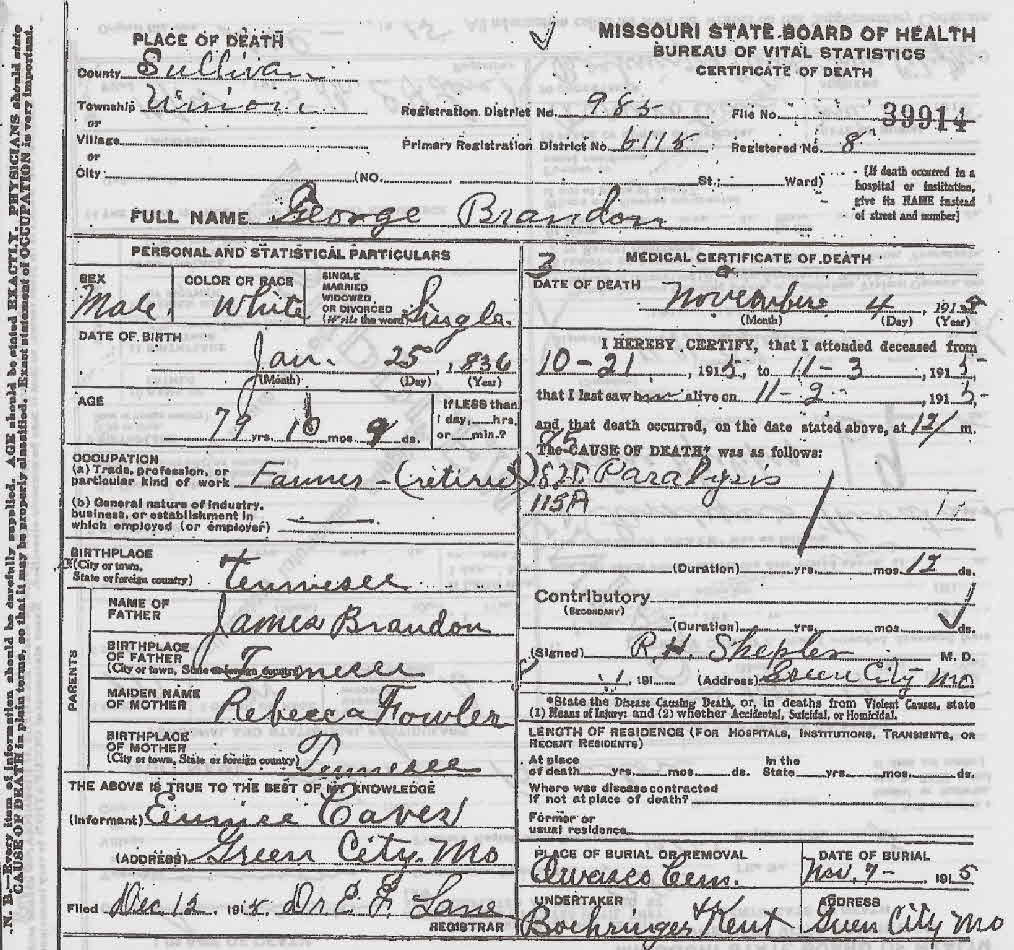 MISSOURI STATE BOARD OF HEALTH
BUREAU OF VITAL STATISTICS
CERTIFICATE OF DEATH
PLACE OF DEATH
County Sullivan
Township Union
or
Village
or
City (NO. St.; Ward)
Registration District No. 985 File No. 39914
Primary Registration District No. 6115 Registered No. 8
[If death occurred in a
hospital or institution,
give its NAME instead
of street and number]
FULL NAME George Brandon
PERSONAL AND STATISTICAL PARTICULARS
SEX
Male
COLOR OR RACE
White
SINGLE
MARRIED
WIDOWED,
OR DIVORCED
(Write the word)
Single.
DATE OF BIRTH
Jan. 25, 1836
(Month) (Day) (Year)
AGE
79 yrs. 10 mos. 9 ds.
If LESS than
1 day, hrs.
or min.?
OCCUPATION
(a) Trade, profession, or
particular kind of work Farmer - (retired)
(b) General nature of industry,
business, or establishment in
which employed (or employer)
BIRTHPLACE
(City or town,
State or foreign country) Tennesee
PARENTS
NAME OF
FATHER James Brandon
BIRTHPLACE
OF FATHER
(City or town, State or foreign country) Tennesee
MAIDEN NAME
OF MOTHER Rebecca Fowler
BIRTHPLACE
OF MOTHER
(City or town, State or foreign country) Tennesee
THE ABOVE IS TRUE TO THE BEST OF MY KNOWLEDGE
(Informant) Eunice Caves
(ADDRESS) Green City Mo
Filed Dec 12 191 Dr E F Lane
REGISTRAR
3 MEDICAL CERTIFICATE OF DEATH
DATE OF DEATH
November 4 1915
(Month) (Day) (Year)
I HEREBY CERTIFY, that I attended deceased from
10-21, 1915, to 11-3, 1915,
that I last saw alive on 11-2 1915,
and that death occurred, on the date stated above, at 12 m.
The CAUSE OF DEATH* was as follows:
Paralysis
115A
(Duration) yrs. mos. 12 ds.
Contributory
(SECONDARY)
(Duration) yrs. mos. ds.
(Signed) R.H. Shepler M. D.
, 191 (Address) Green City Mo
*State the Disease Causing Death, or, in deaths from Violent Causes, state
(1) Means of Injury; and (2) whether Accidental, Suicidal, or Homicidal.
LENGTH OF RESIDENCE (FOR HOSPITALS, INSTITUTIONS, TRANSIENTS, OR
RECENT RESIDENTS)
At place
of death yrs. mos. ds.
In the
State yrs. mos. ds.
Where was disease contracted
if not at place of death?
Former or
usual residence
PLACE OF BURIAL OR REMOVAL
Owasco Cem.
DATE OF BURIAL
Nov. 7- 1915
UNDERTAKER
Boehringer & Kent
ADDRESS
Green City Mo
N. B.—Every item of information should be carefully supplied. AGE should be stated EXACTLY. PHYSICIANS should state
CAUSE OF DEATH in plain terms, so that it may be properly classified. Exact statement of OCCUPATION is very important.